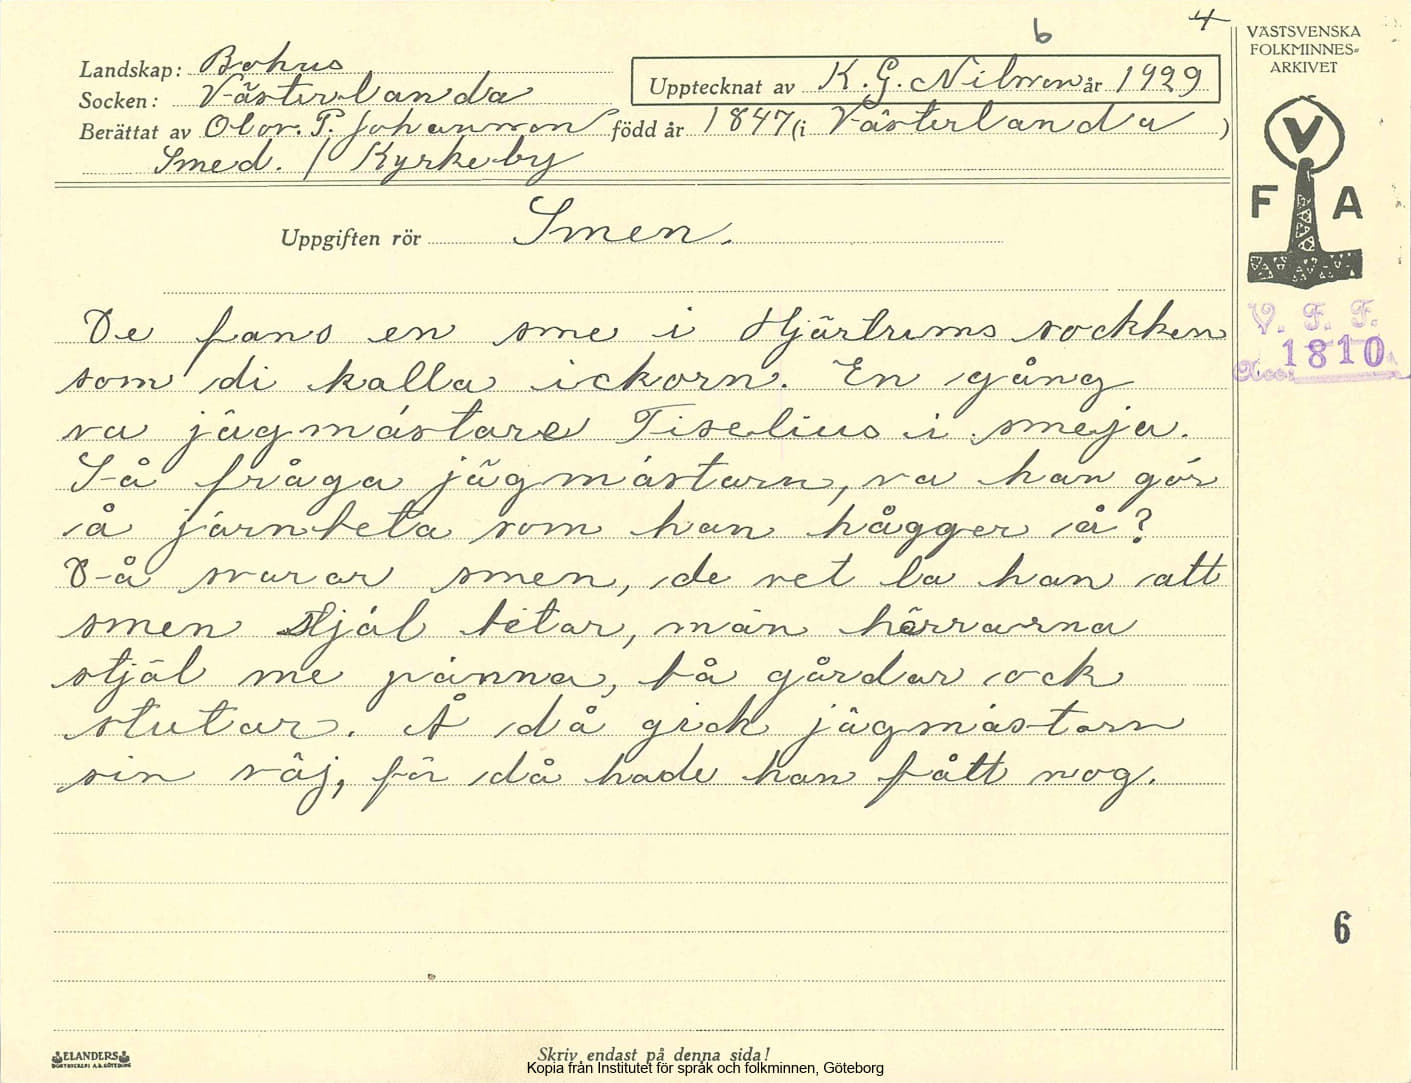 6 4
VÄSTSVENSKA
FOLKMINNES-
ARKIVET
Landskap: Bohus
Socken: Västerlanda
Upptecknat av K. G. Nilsson år 1929
Berättat av Olov. P. Johansson född år 1847 (i Västerlanda )
Smed. / Kyrkeby
V
F A
Uppgiften rör Smen.
V. F. F.
Acc: 1810
De fans en sme i Hjärtums sockken
som di kalla ickorn. En gång
va jägmästare Tiselius i smeja.
Så fråga jägmästarn, va han gör
å järnbeta som han hågger å?
Då svarar smen, de vet la han att
smen stjäl betar, män hërrarna
stjäl me pänna, bå gårdar ock
stutar. Å då gick jägmästarn
sin väj, får då hade han fått nog.
6
ELANDERS
BOKTRYCKERI A.B. GÖTEBORG
Skriv endast på denna sida!
Kopia från Institutet för språk och folkminnen, Göteborg